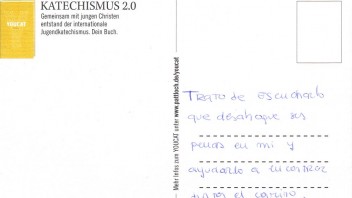 YOUCAT
KATECHISMUS 2.0
Gemeinsam mit jungen Christen
entstand der internationale
Jugendkatechismus. Dein Buch.
Mehr Infos zum YOUCAT unter www.pattloch.de/youcat
Trato de escucharlo
que desahogue sus
penas en mi y
ayudarlo a encontrar
el camino.